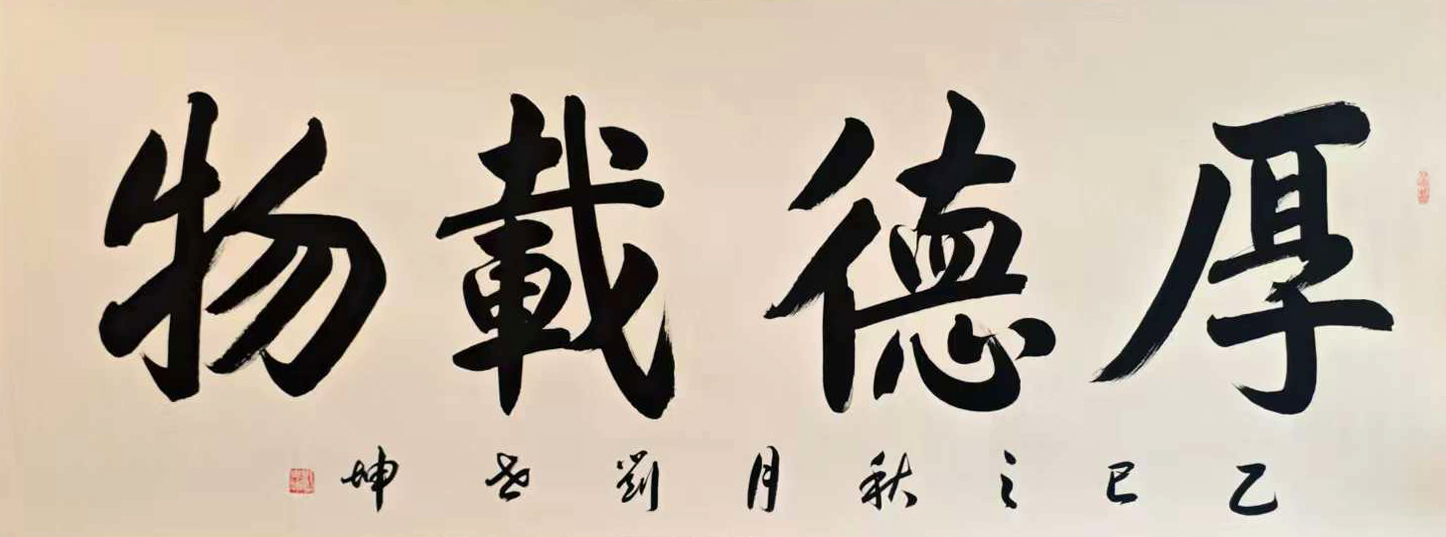 厚德載物
乙巳之秋月劉世坤